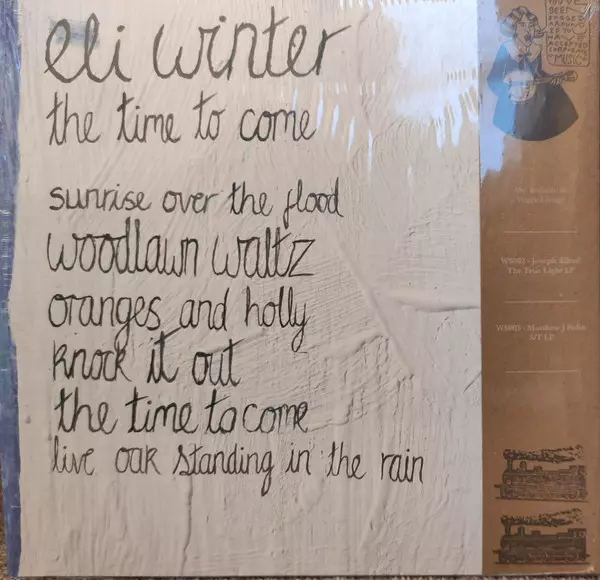 eli winter
the time to come
sunrise over the flood
woodlawn waltz
oranges and holly
knock it out
the time to come
live oak standing in the rain
YOU'VE
BEEN
MUSIC
The True Light LP
S/T LP